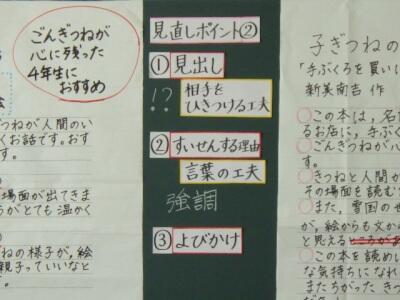 ごんぎつねが
心に残った
4年生に
おすすめ
つねが人間のい
くお話です。おす
す。
場面が出てきま
らがとても温かく
ねの様子が、絵
親子っていいなと
見直しポイント②
①見出し
!?
相手を
ひきつける工夫
②すいせんする理由
言葉の工夫
強調
③よびかけ
子ぎつねの
「手ぶくろを買いに
新美南吉 作
○この本は、名
るお店に、手ぶく
す。
○ごんぎつねが
○きつねと人間が
その場面を読むた
○また、雪国の世
が、絵からも文か
と思える
○この本を読めし
な気持ちになれ
またちがった きつ